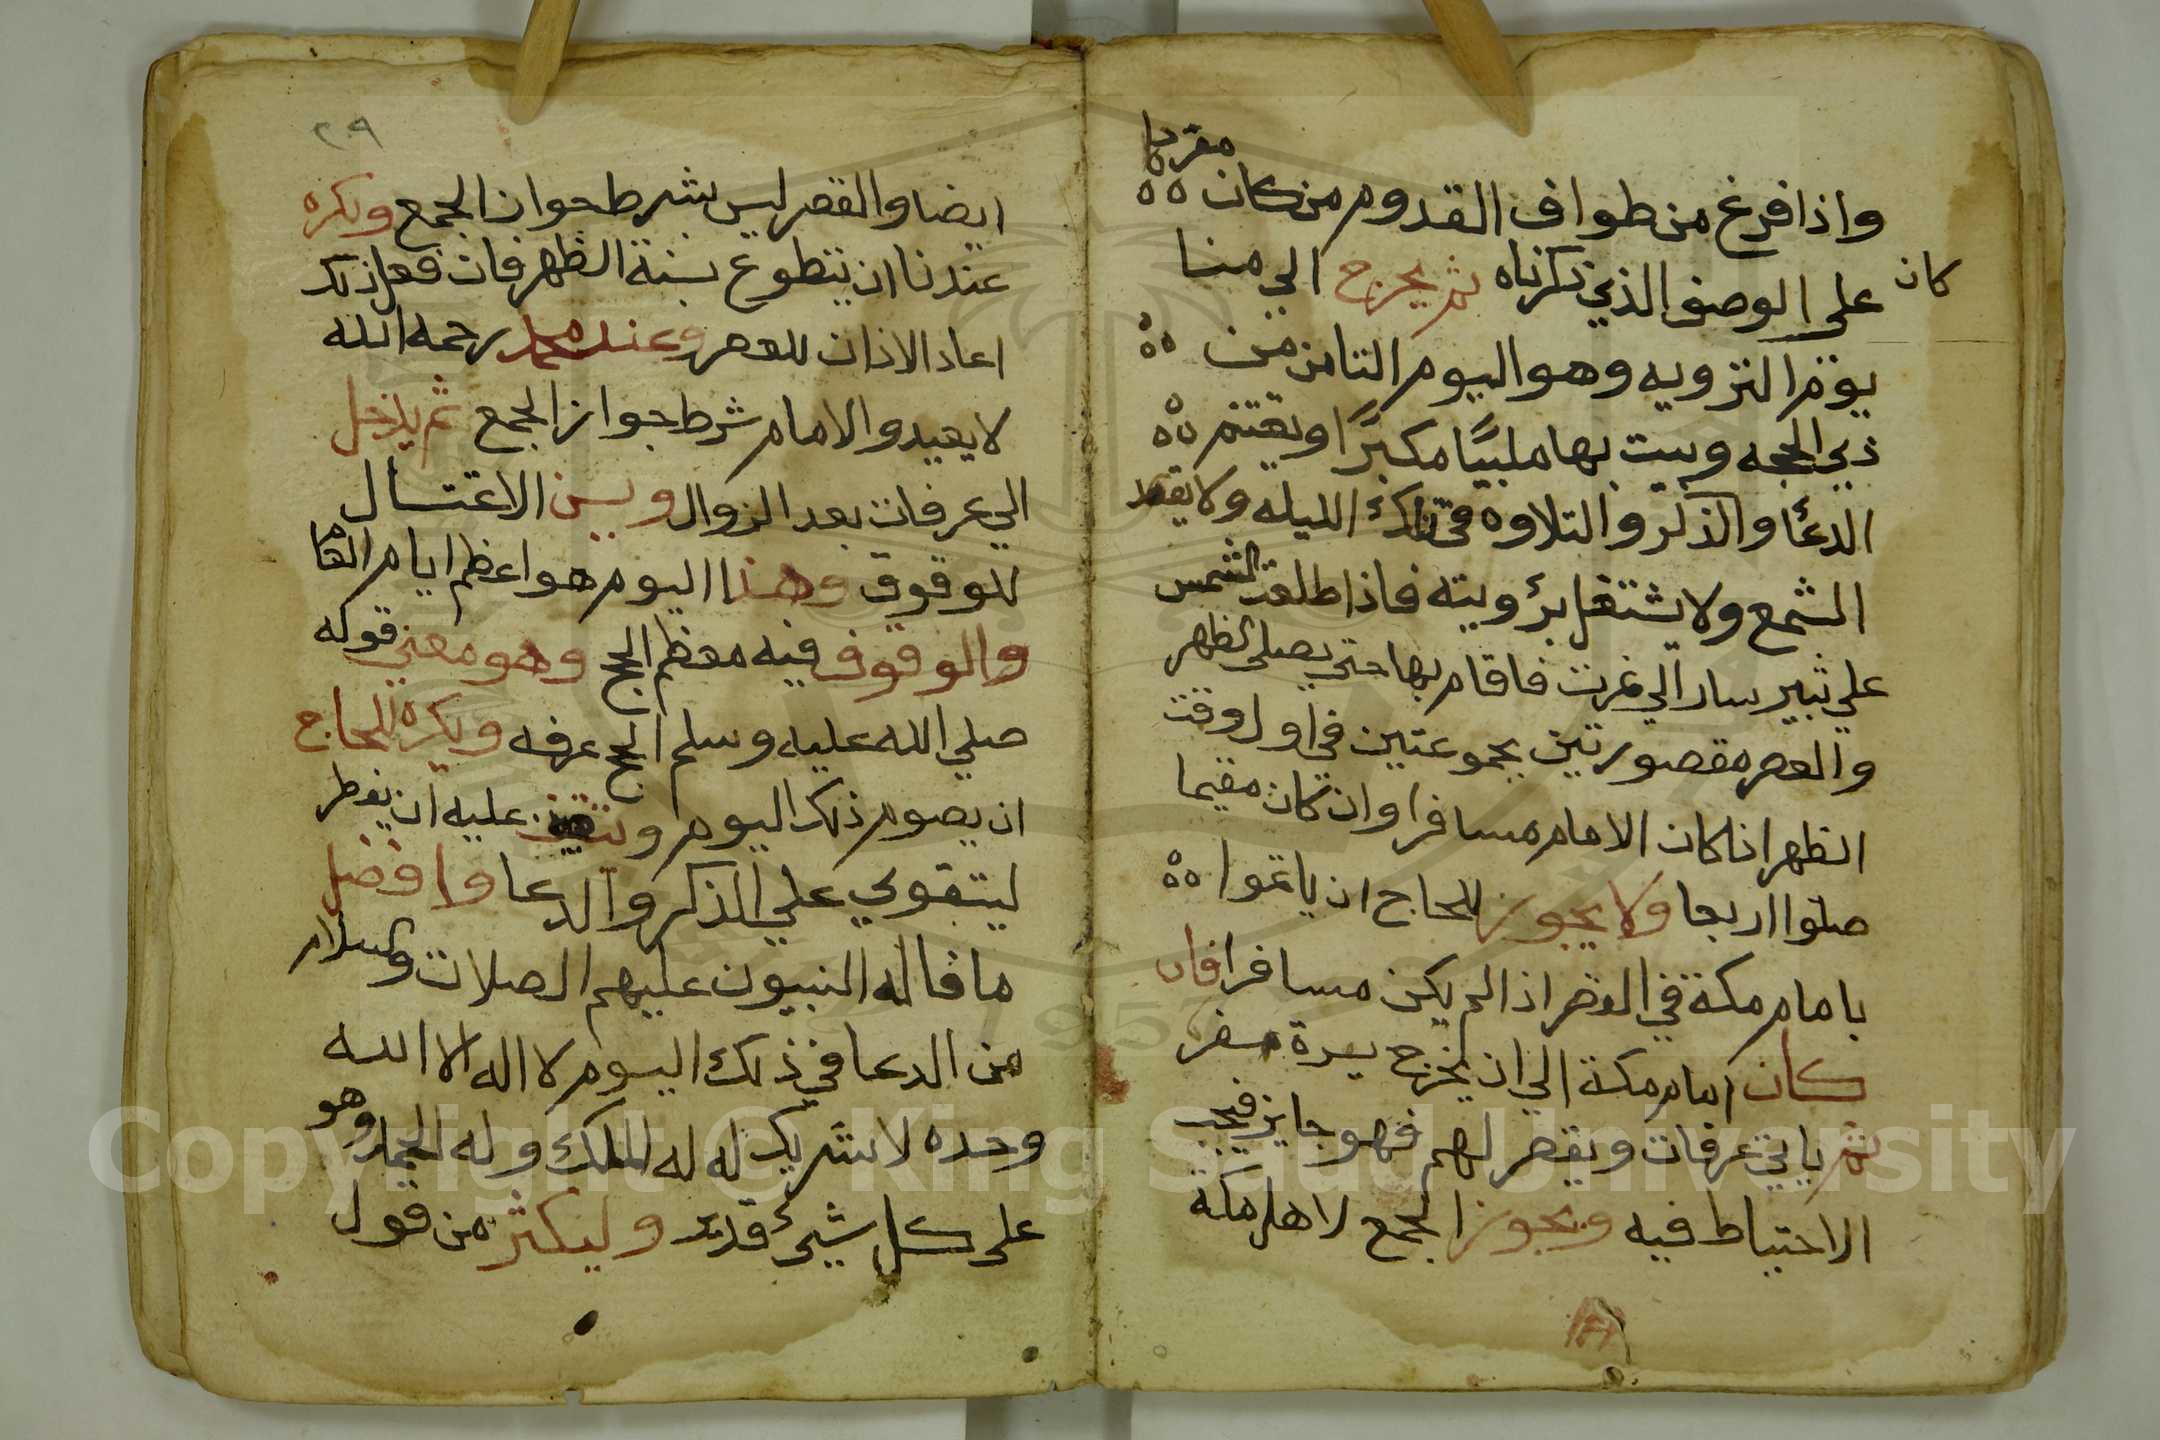 واذا فرغ من طواف القدوم من كان مفردا
كان
علي الوصف الذي ذكرناه ثم يخرج الي منا
يوم التزويه وهو اليوم الثامن من
ذي الحجه ويبيت بها ملبيًا مكبرًا ويغتنم
الدعاء والذكر والتلاوه في تلك الليله ولا يقد
الشمع ولا يشتغل برؤيته فاذا طلعت الشمس
علي ثبير سار الي نمرت فاقام بها حتي يصلي الظهر
والعصر مقصورتين مجموعتين في اول وقت
الظهر اذا كان الامام مسافرا وان كان مقيما
صلوا اربعا ولا يجوز للحاج ان ياتموا
بامام مكة في القصر اذا لم يكن مسافرا فان
كان امام مكة الي ان يخرج يسرة سفر
ثم ياتي عرفات ويقصر لهم فهو جايز فيجب
الاحتياط فيه ويجوز الجمع لاهل مكة
٢٩
ايضا والقصر ليس بشرط جواز الجمع ويكره
عندنا ان يتطوع بسنة الظهر فان فعل ذلك
اعاد الاذان للعصر وعند محمد رحمه الله
لا يعيد والامام شرط جواز الجمع ثم يدخل
الي عرفات بعد الزوال ويسن الاغتسال
للوقوف وهذا اليوم هو اعظم ايام العام
والوقوف فيه معظم الحج وهو معني قوله
صلي الله عليه وسلم الحج عرفه ويكره للحاج
ان يصوم ذلك اليوم عليه ان يفطر
ليتقوي علي الذكر والدعا وافضل
ما قاله النبيون عليهم الصلات والسلام
من الدعا في ذلك اليوم لا اله الا الله
وحده لا شريك له له الملك وله الحمد وهو
علي كل شيء قدير وليكثر من قول
Copyright © King Saud University
1957